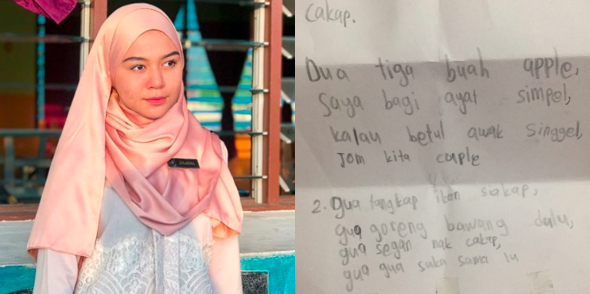 cakap.
Dua tiga buah apple,
Saya bagi ayat simpel,
kalau betul awak singgel,
Jom kita couple
2. Gua tangkap ikan siakap,
gua goreng bawang dulu,
gua segan nak cakap,
gua gua suka sama lu